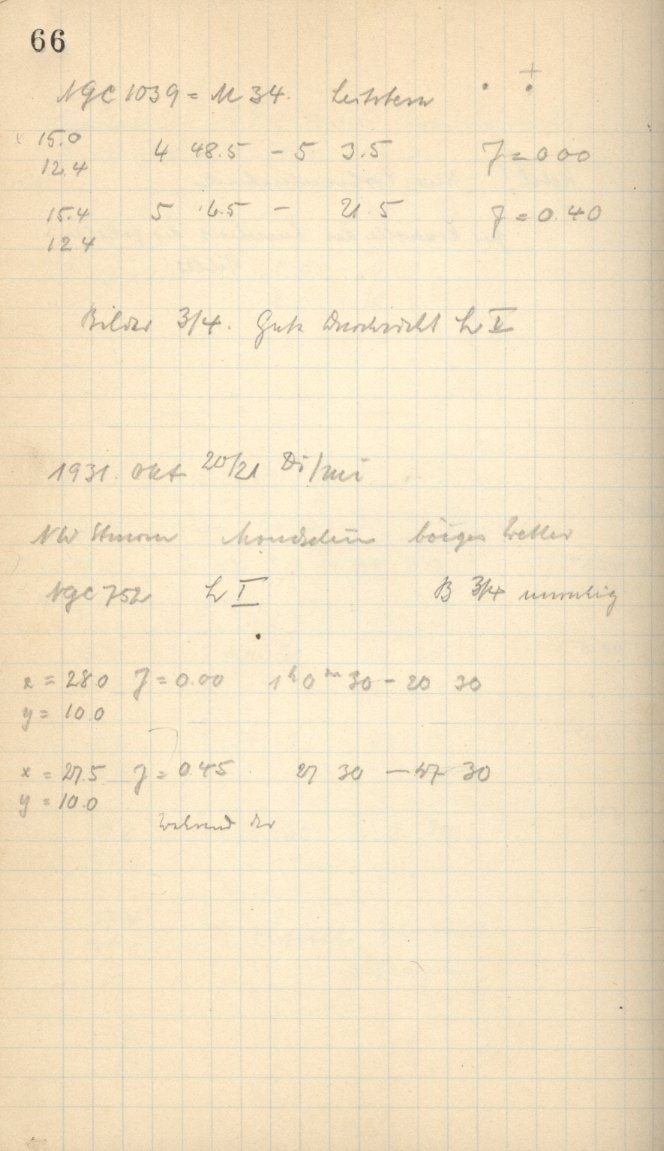 66
NGC 1039 = M 34. Leitstern
15.0
12.4
4 48.5 - 5 3.5 J = 0.00
15.4
12.4
5 6.5 - 21.5 J = 0.40
Bilder 3/4. Gute Durchsicht L II
1931. Okt 20/21 Di/Mi
NW Sturm Mondschein böiges Wetter
NGC 752 L I B 3/4 unruhig
x = 28.0 J = 0.00 1h 0m 30 - 20 30
y = 10.0
x = 27.5 J = 0.45 27 30 - 47 30
y = 10.0
während der